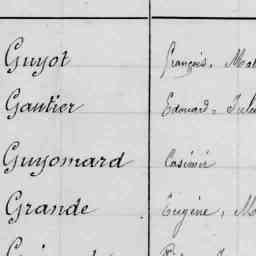 Guyot François, 
Gautier Edouard, 
Guyomard Casimir
Grande Eugène,